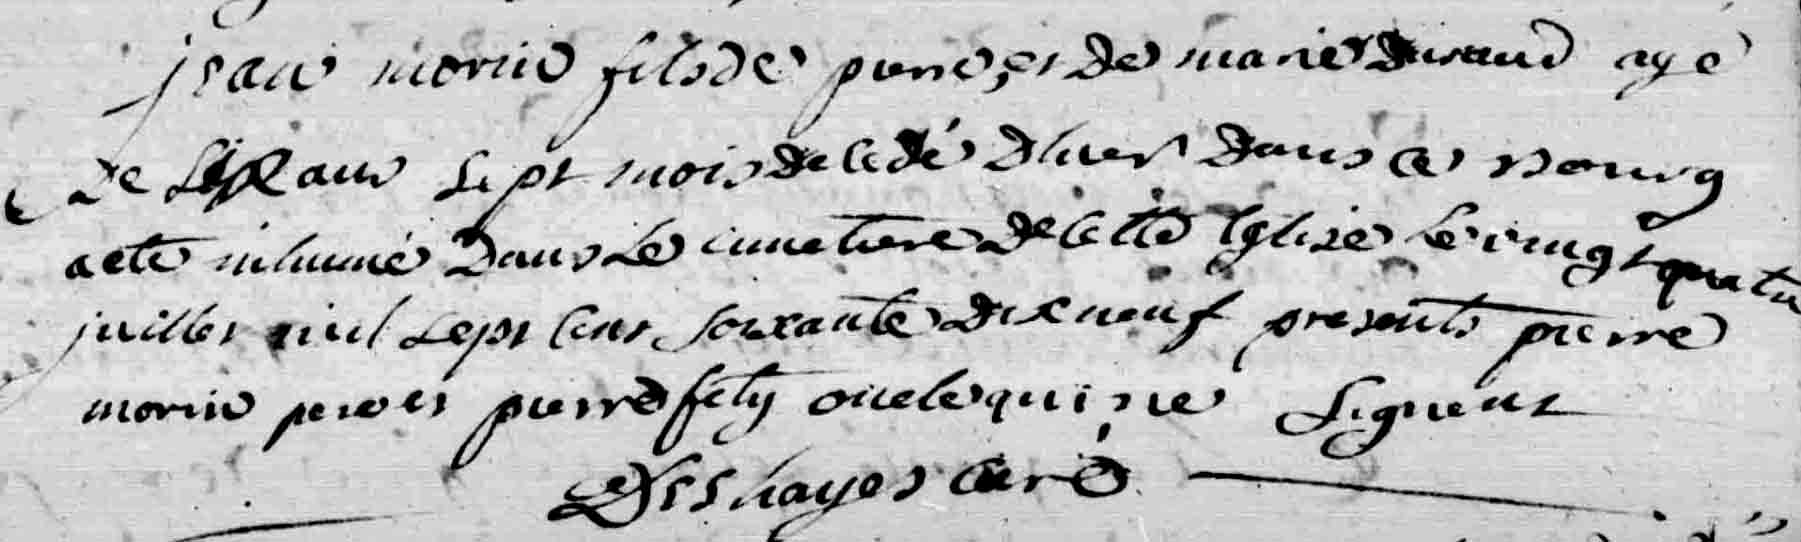 jean morin fils de pierre, et de marie durand agé
de six ans sept mois decedé d'hier dans ce bourg
a eté inhumé dans le cimetiere de cette Eglise le vingt quatre
juillet mil sept cent soixante dix neuf presents pierre
morin pere et pierre fety oncle qui ne signent
Desshayes curé